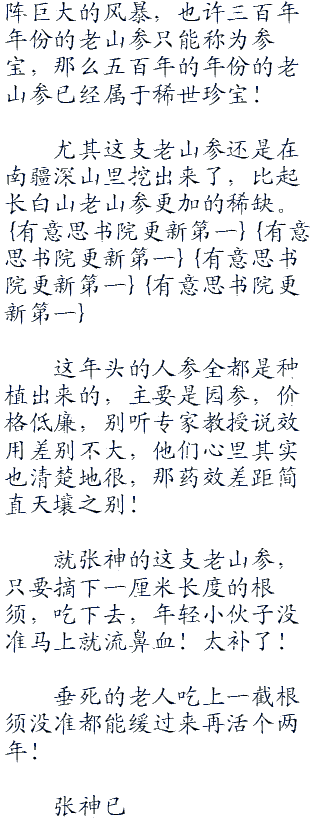 阵巨大的风暴，也许三百年
年份的老山参只能称为参
宝，那么五百年的年份的老
山参已经属于稀世珍宝！
尤其这支老山参还是在
南疆深山里挖出来了，比起
长白山老山参更加的稀缺。
{有意思书院更新第一} {有意
思书院更新第一} {有意思书
院更新第一} {有意思书院更
新第一}
这年头的人参全都是种
植出来的，主要是园参，价
格低廉，别听专家教授说效
用差别不大，他们心里其实
也清楚地很，那药效差距简
直天壤之别！
就张神的这支老山参，
只要摘下一厘米长度的根
须，吃下去，年轻小伙子没
准马上就流鼻血！太补了！
垂死的老人吃上一截根
须没准都能缓过来再活个两
年！
张神已